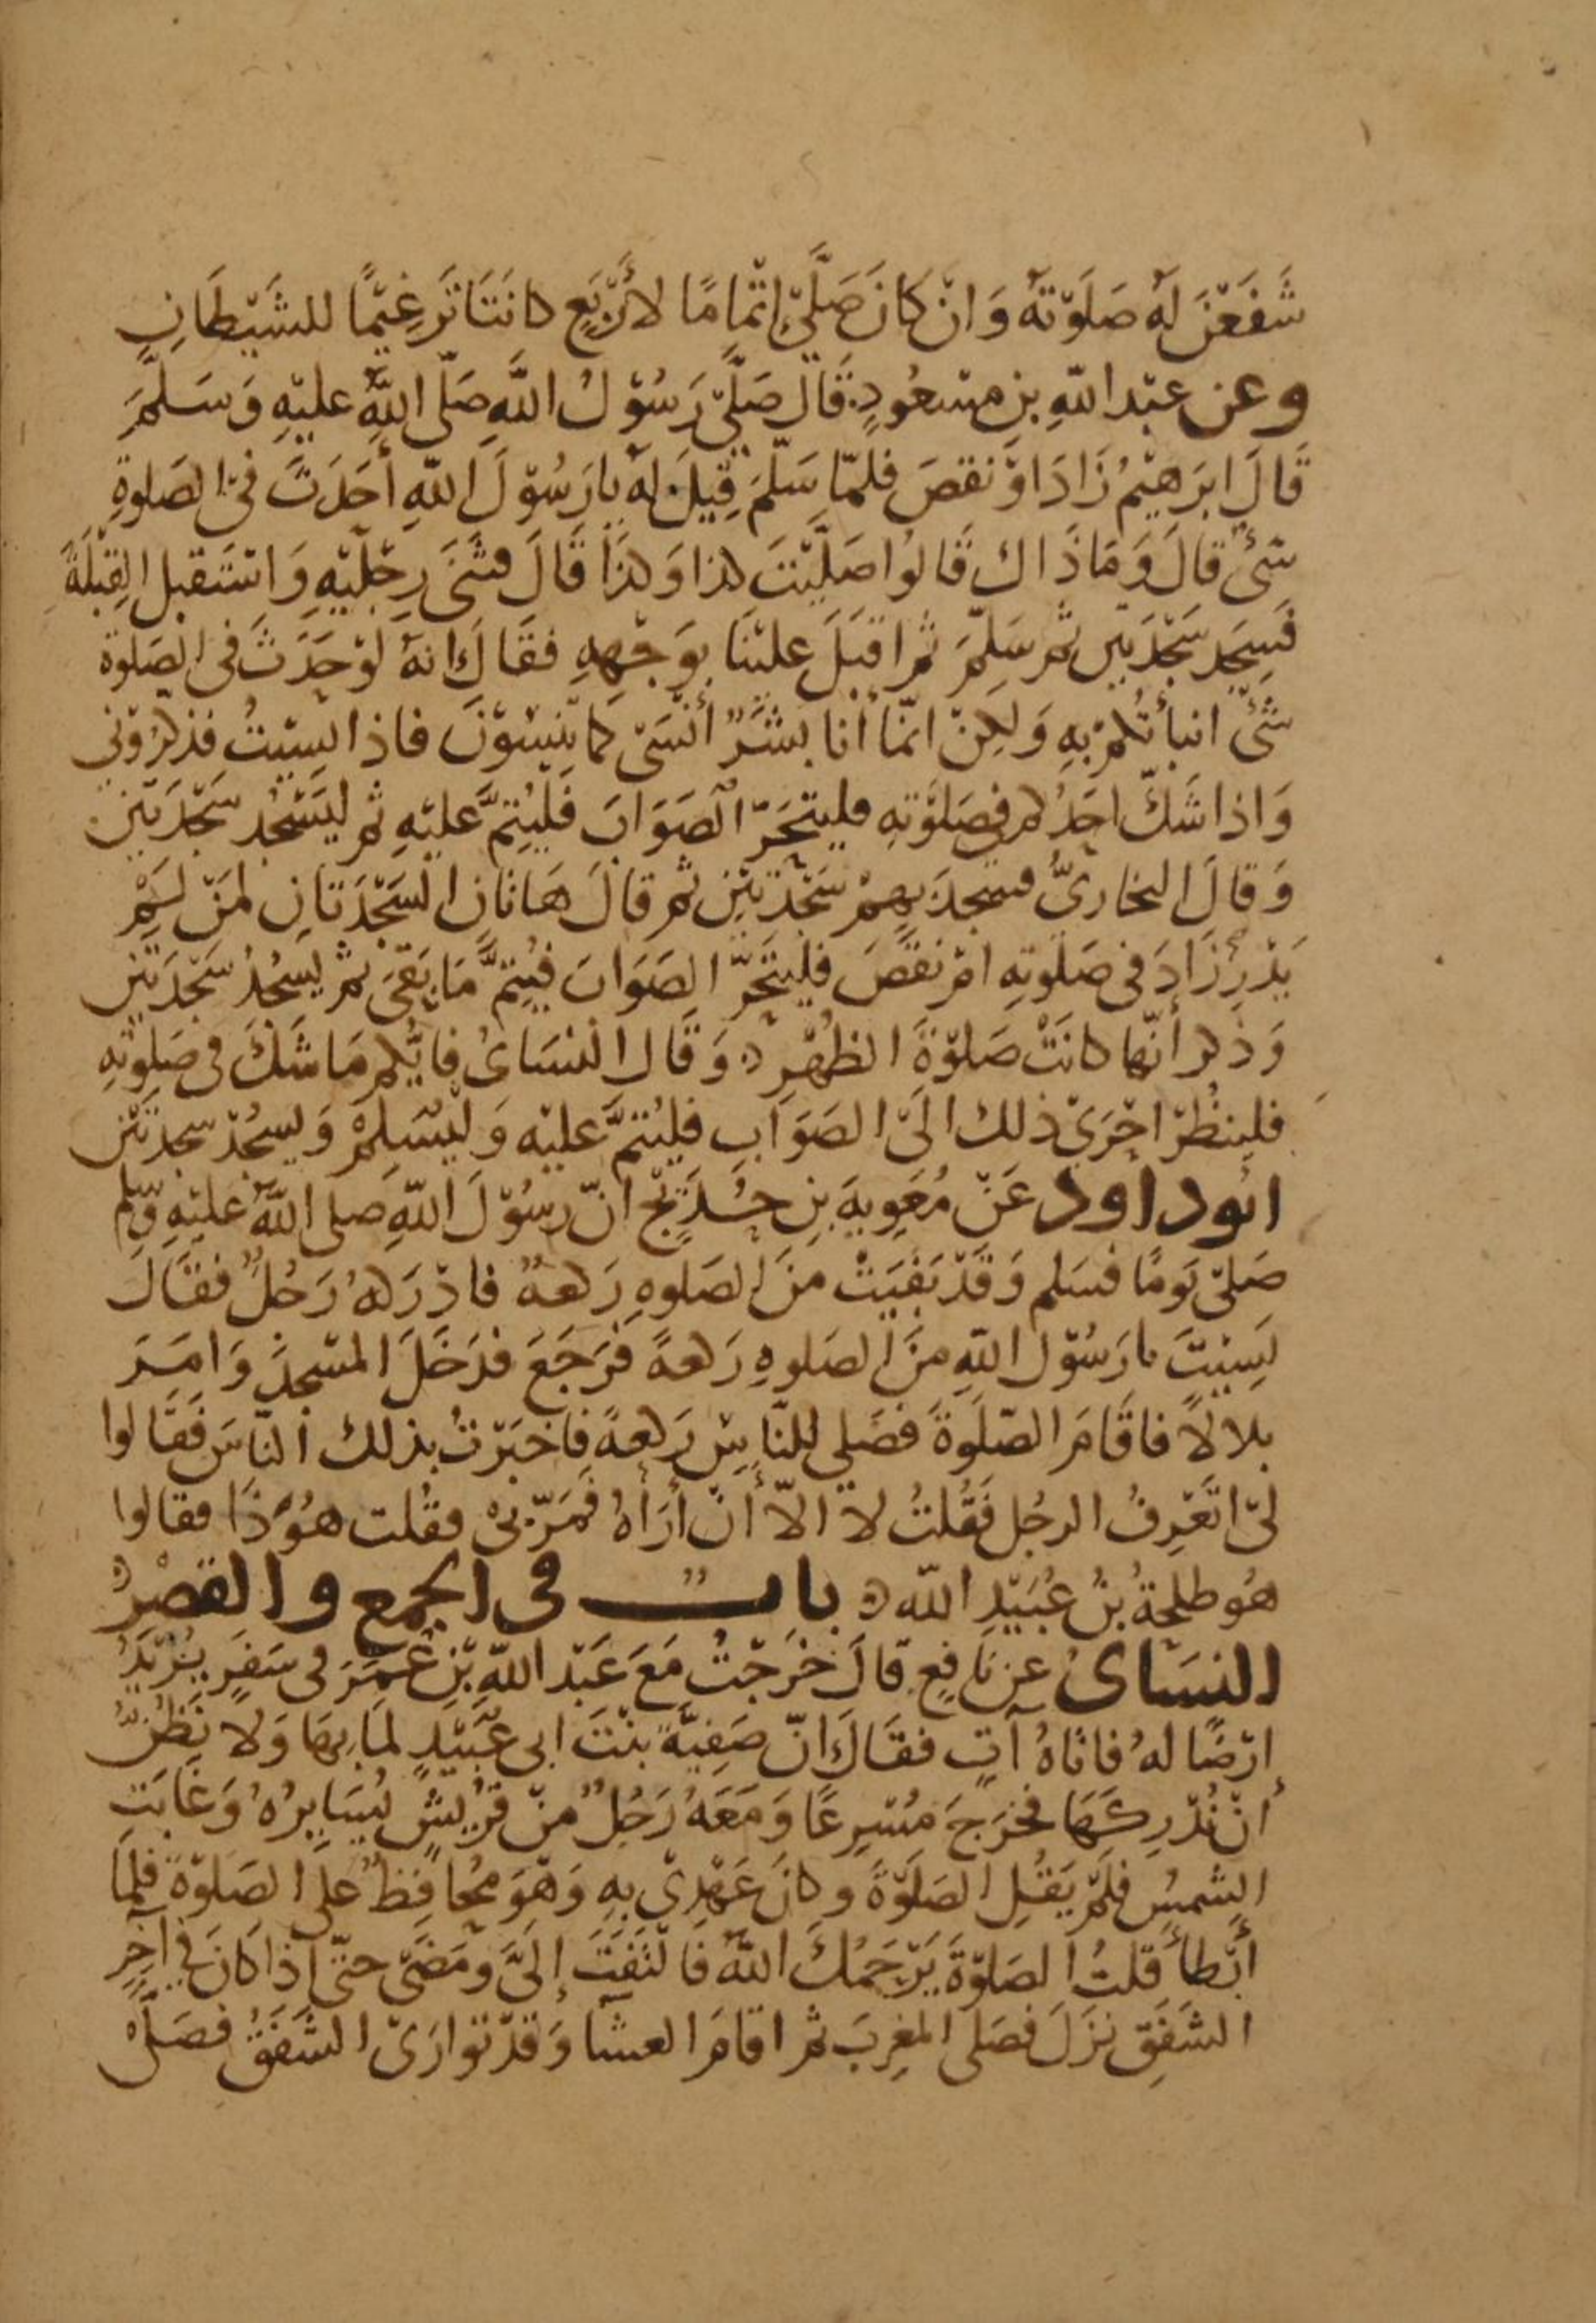 شَفَعْنَ لَهُ صَلَوتهُ وَانْ كَانَ صَلَّى اِتْمَامًا لأَرْبَعٍ كانَتَا تَرغِيْمًا للشَيْطَانِ
وعن عبْد اللهِ بن مسْعُودٍ قَالَ صَلَّى رَسُوْلُ اللَّهِ صَلّى اللَّهُ عليْهِ وَسَلَّمَ
قَالَ ابرَهيْمُ زَادَ اوْ نقصَ فلمّا سَلّمَ قِيلَ لهُ يا رَسُوْلَ اللهِ أحَدَثَ فىْ الصَلوةِ
شىْءٌ قالَ وَمَا ذَاك قَالوُا صَلَّيْتَ كذا وَكذَا قَالَ فثَنَى رِجْليْهِ وَاسْتَقبل القِبْلَةَ
فَسجَد سَجْدَتيْن ثم سَلّمَ ثم اقبَلَ عليْنَا بوَجْههِ فقَالَ انهُ لوْ حدَثَ فى الصَلوة
شىْءٌ انبأتُكمْ بهِ وَلكِنْ انمَّا أنا بشَرٌ أنْسَى كما تَنْسَوْنَ فاذا نسيْتُ فذكرُوْنى
وَاذا شَكّ احَدُكم فى صَلوَتهِ فليتحَرّ الصَوَابَ فَليُتِمَّ عليْهِ ثم ليَسْجُدْ سَجْدَتيْن
وَقالَ البخارىُّ فسجدَ بهِمْ سَجْدَتيْنِ ثم قالَ هَاتَانِ السَجْدَتَانِ لمَنْ لَمْ
يَدْرِ زَادَ فى صَلوتهِ امْ نقَصَ فليتَحَرّ الصَوَابَ فيُتِمَّ مَا بَقىَ ثم يسْجُدُ سَجْدَتيْن
وَذكر أنّها كانَتْ صَلوْةَ الظُهْرِ وَقَال النسَائُ فايُّكم مَا شَكَّ فى صَلوتهِ
فلينظُرْ احْرَى ذلك الَى الصَوَاب فليُتمَّ عليْه وَليُسَلمْ وَيسجُدْ سجدتَيْن
ابُو داود عَنْ مُعَوِيةَ بنِ حُدَيْجٍ انّ رسُوْلَ اللهِ صلى اللهُ عليْهِ وسلم
صَلىّ يَومًا فسَلم وَقَدْ بَقيَتْ منَ الصَلوهِ رَكعةٌ فادْرَكهُ رَجُلٌ فقَالَ
نَسِيْتَ يا رَسُوْل اللهِ منَ الصَلوهِ رَكعةً فرَجَعَ فدَخَلَ المسْجدَ وَامَرَ
بلالاً فاقَامَ الصَّلَوةَ فصَلى للنّاسِ رَكعةً فاخبَرْتُ بذلك النّاسَ فَقَالوا
لىْ اتَعْرِفُ الرجُل فَقُلتُ لا الاّ أنْ أرَاهُ فمَرّ بىْ فقُلت هوُ ذَا فقالوا
هُو طلحةُ بنُ عُبَيْدِ اللّه بابٌ فى الجمع والقصْر
النسَائُ عن نَافِعٍ قالَ خرَجْتُ مَعَ عَبْد اللّه بْنِ عُمَرَ فى سَفَرٍ يُرِيْدُ
ارْضًا لهُ فاتَاهُ آتٍ فقَالَ انّ صَفِيَّةَ بنْتَ ابى عُبَيْدٍ لمَا بهَا وَلا نَظُنُّ
أنْ نُدْرِكَهَا فخرَجَ مُسْرِعًا وَمَعَهُ رَجُلٌ منْ قرُيْشٍ يُسَايِرُهُ وَغابَتِ
الشمسُ فلَمْ يَقُلِ الصَلَوْةَ وكانَ عَهْدِىْ بهِ وَهْوَ مُحَافِظٌ عَلى الصَلوَةَ فلمَا
أَبْطأَ قلتُ الصَلوْةَ يَرْحَمُكَ اللهُ فالْتَفَتَ إلَىَّ وَمَضَى حتىّ اذا كَانَ فى آخِرِ
الشَفَقِ نزَلَ فصَلى المغرِبَ ثم اقامَ العشَا وَقدْ تَوارَى الشَفَقُ فصَلَّى